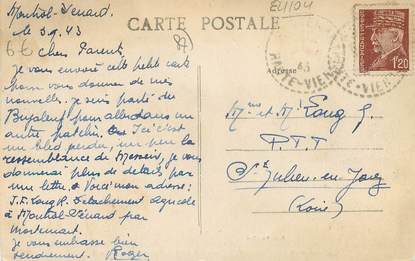 CARTE POSTALE
EU104
87
6€
Montrol-Sénard
le 3.9.43
Chers Parents
Je vous envoie cette petite carte
pour vous donner de mes
nouvelles. Je suis parti de
Bujaleuf pour aller dans un
autre patelin. Ici c'est
un bled perdu, un peu la
ressemblance de, je vous
donnerai plus de détails par
une lettre. Voici mon adresse:
J.F. Détachement agricole
à Montrol-Sénard par
Mortemart.
Je vous embrasse bien
tendrement. Roger
Adresse
43
HAUTE-VIENNE
1F20
Mme et Mr
P.T.T
St Julien-en-Jarez
(Loire)